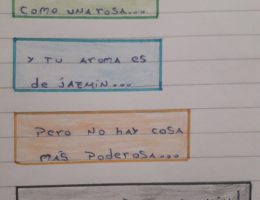 COMO UNA ROSA...
Y TU AROMA ES
DE JAZMIN...
PERO NO HAY COSA
MAS PODEROSA...